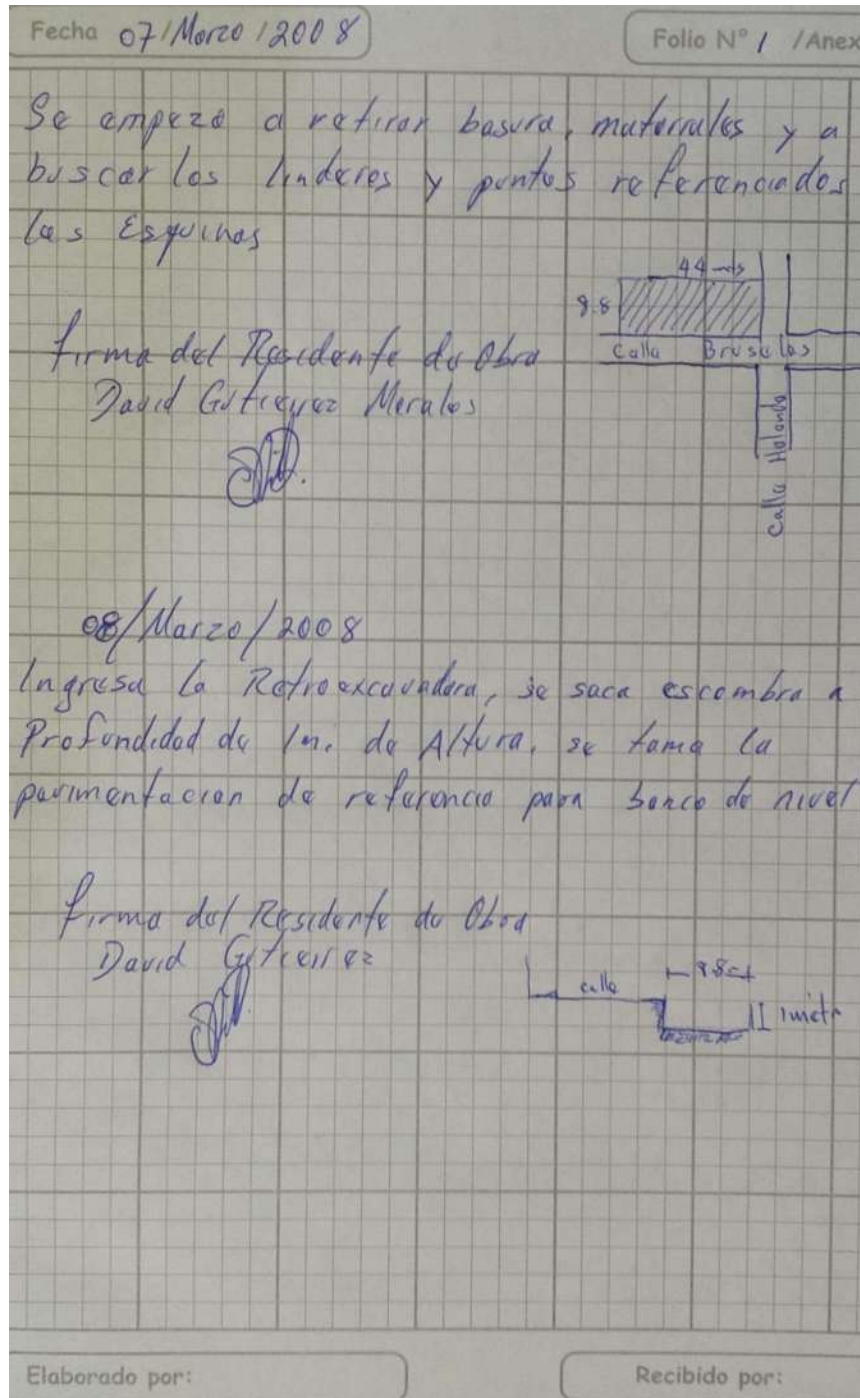 Fecha 07/Marzo/2008
Folio N° 1 /Anex
Se empezó a retirar basura, matorrales y a
buscar los linderos y puntos referenciados
las Esquinas
44 mts
9.8
Calle Bruselas
Calle Holanda
firma del Residente de Obra
David Gutierrez Morales
08/Marzo/2008
Ingresa la Retroexcavadora, se saca escombra a
Profundidad de 1m. de Altura, se toma la
pavimentacion de referencia para banco de nivel
firma del Residente de Obra
David Gutierrez
calle
1 metr
Elaborado por:
Recibido por: